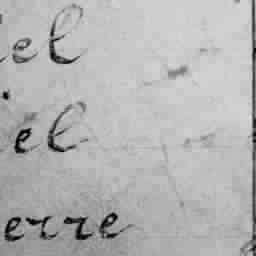 iel
iel
erre